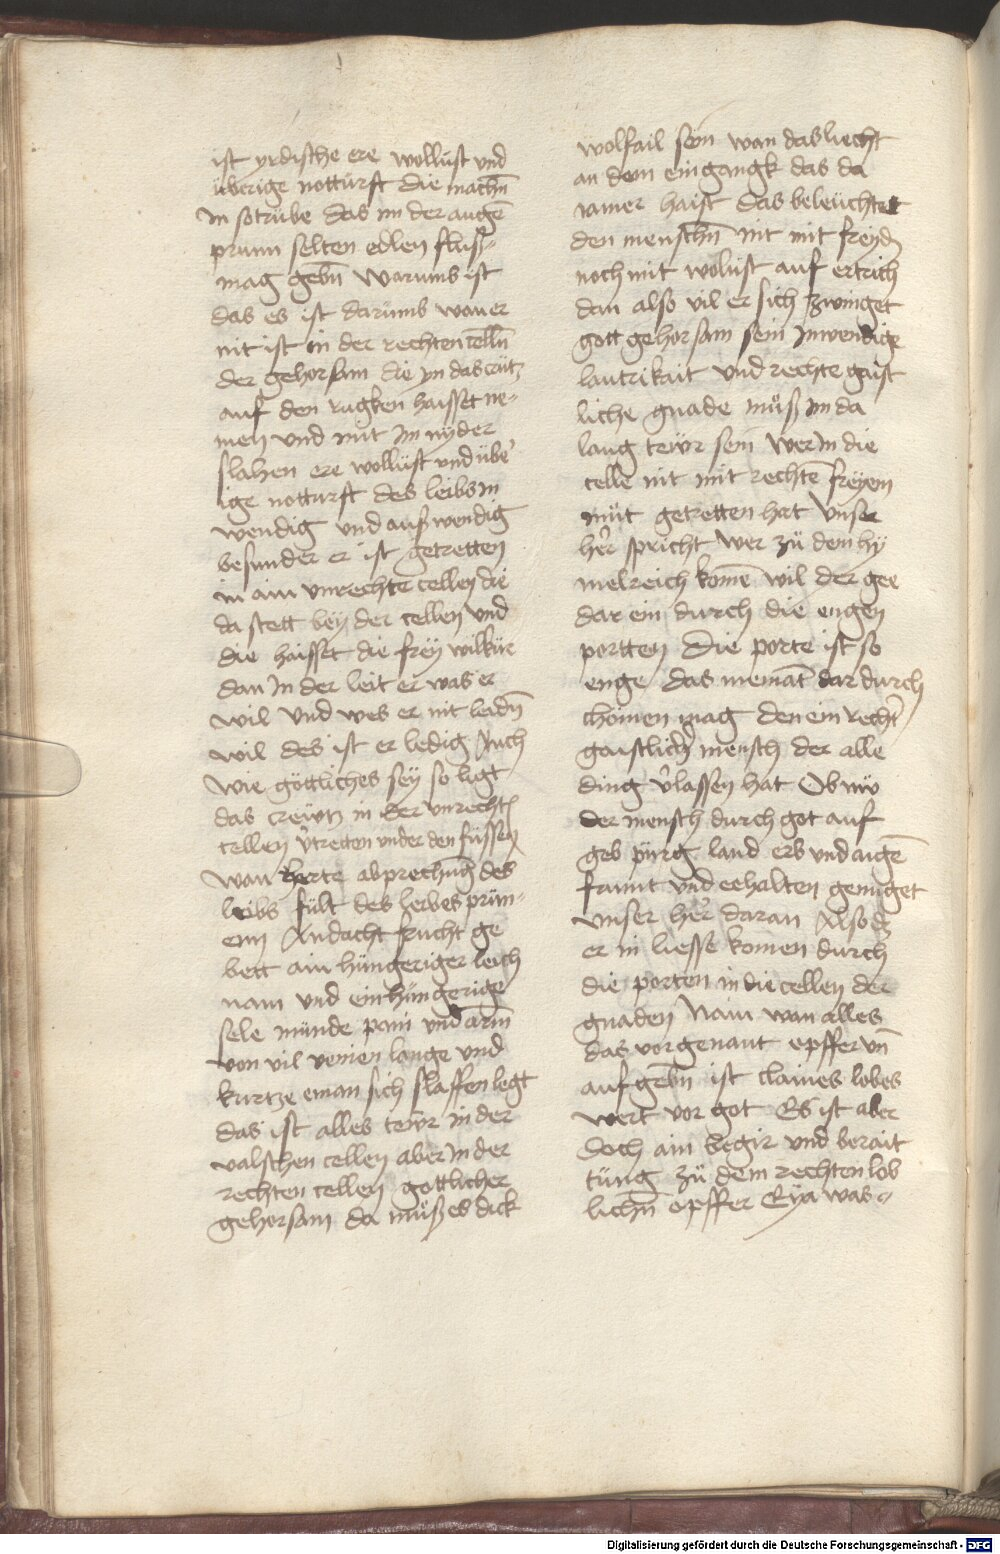 ist yrdische ere wollust vnd
überige notturft die machn̄
In sotrübe das im der augē
prunn selten edlen flusz
mag gebn̄ Warumb ist
das es ist darumb wan er
nit ist in der rechten celln̄
der gehorsam die yn das crütz
auf den rugken haisset ne-
men vnd mit Im nyder
slahen ere wollust vnd übe͛
ige notturft des leibs in
wendig vnd auszwendig
besunder er ist getretten
in ain vnrechte cellen die
da stett bey der cellen vnd
die haisset die frey wilkür
dan In der leit er was er
wil vnd wes er nit leidn̄
wil des ist er ledig Auch
wie göttliches sey so ligt
das creütz in der vnrechtn̄
cellen v͛tretten vnder den füssen
wan herte abprechung des
leibs fült des herbes prun-
enn Andacht frucht ge
bett ain hungeriger leich
nam vnd ein hungerige
sele munde pain vnd arm
von vil venien lange vnd
kurtze eman sich slaffen legt
das ist alles teẅr in der
valschen cellen aber in der
rechten cellen gottlicher
gehorsam da müsz es dick
wolfail sein wan das liecht
an dem eingangk das da
iamer haist das beleüchtet
den menschn̄ nit mit freyd
noch mit wolust auf ertrich
dan also vil er sich zwinget
gott gehorsam sein Inwendige
lautrikait vnd rechte gaist
liche gnade müsz im da
lang teẅr sein Wer In die
celle nit mit rechtē freyem
müt getretten hat Vnser
he͛r spricht Wer zü dem hy
melreich komē wil der gee
dar ein durch die engen
portten Die porte ist so
enge das niemāt dar durch
chomen mag den ein recht͛
gaistlich͛ mensch der alle
ding v͛lassen hat Ob nw
der mensch durch got auf
geb pürg land erb vnd aigē
frunt vnd eehalten genuget
vnser he͛r daran Also dz
er in liesse komen durch
die porten in die cellen der
gnaden Nain wan alles
das vorgenant opffer vn̄
aufgebn̄ ist claines lobes
wert vor got Es ist aber
doch ain begir vnd berait
tüng zü dem rechten lob
lichn̄ opffer Eya was
Digitalisierung gefördert durch die Deutsche Forschungsgemeinschaft - DFG